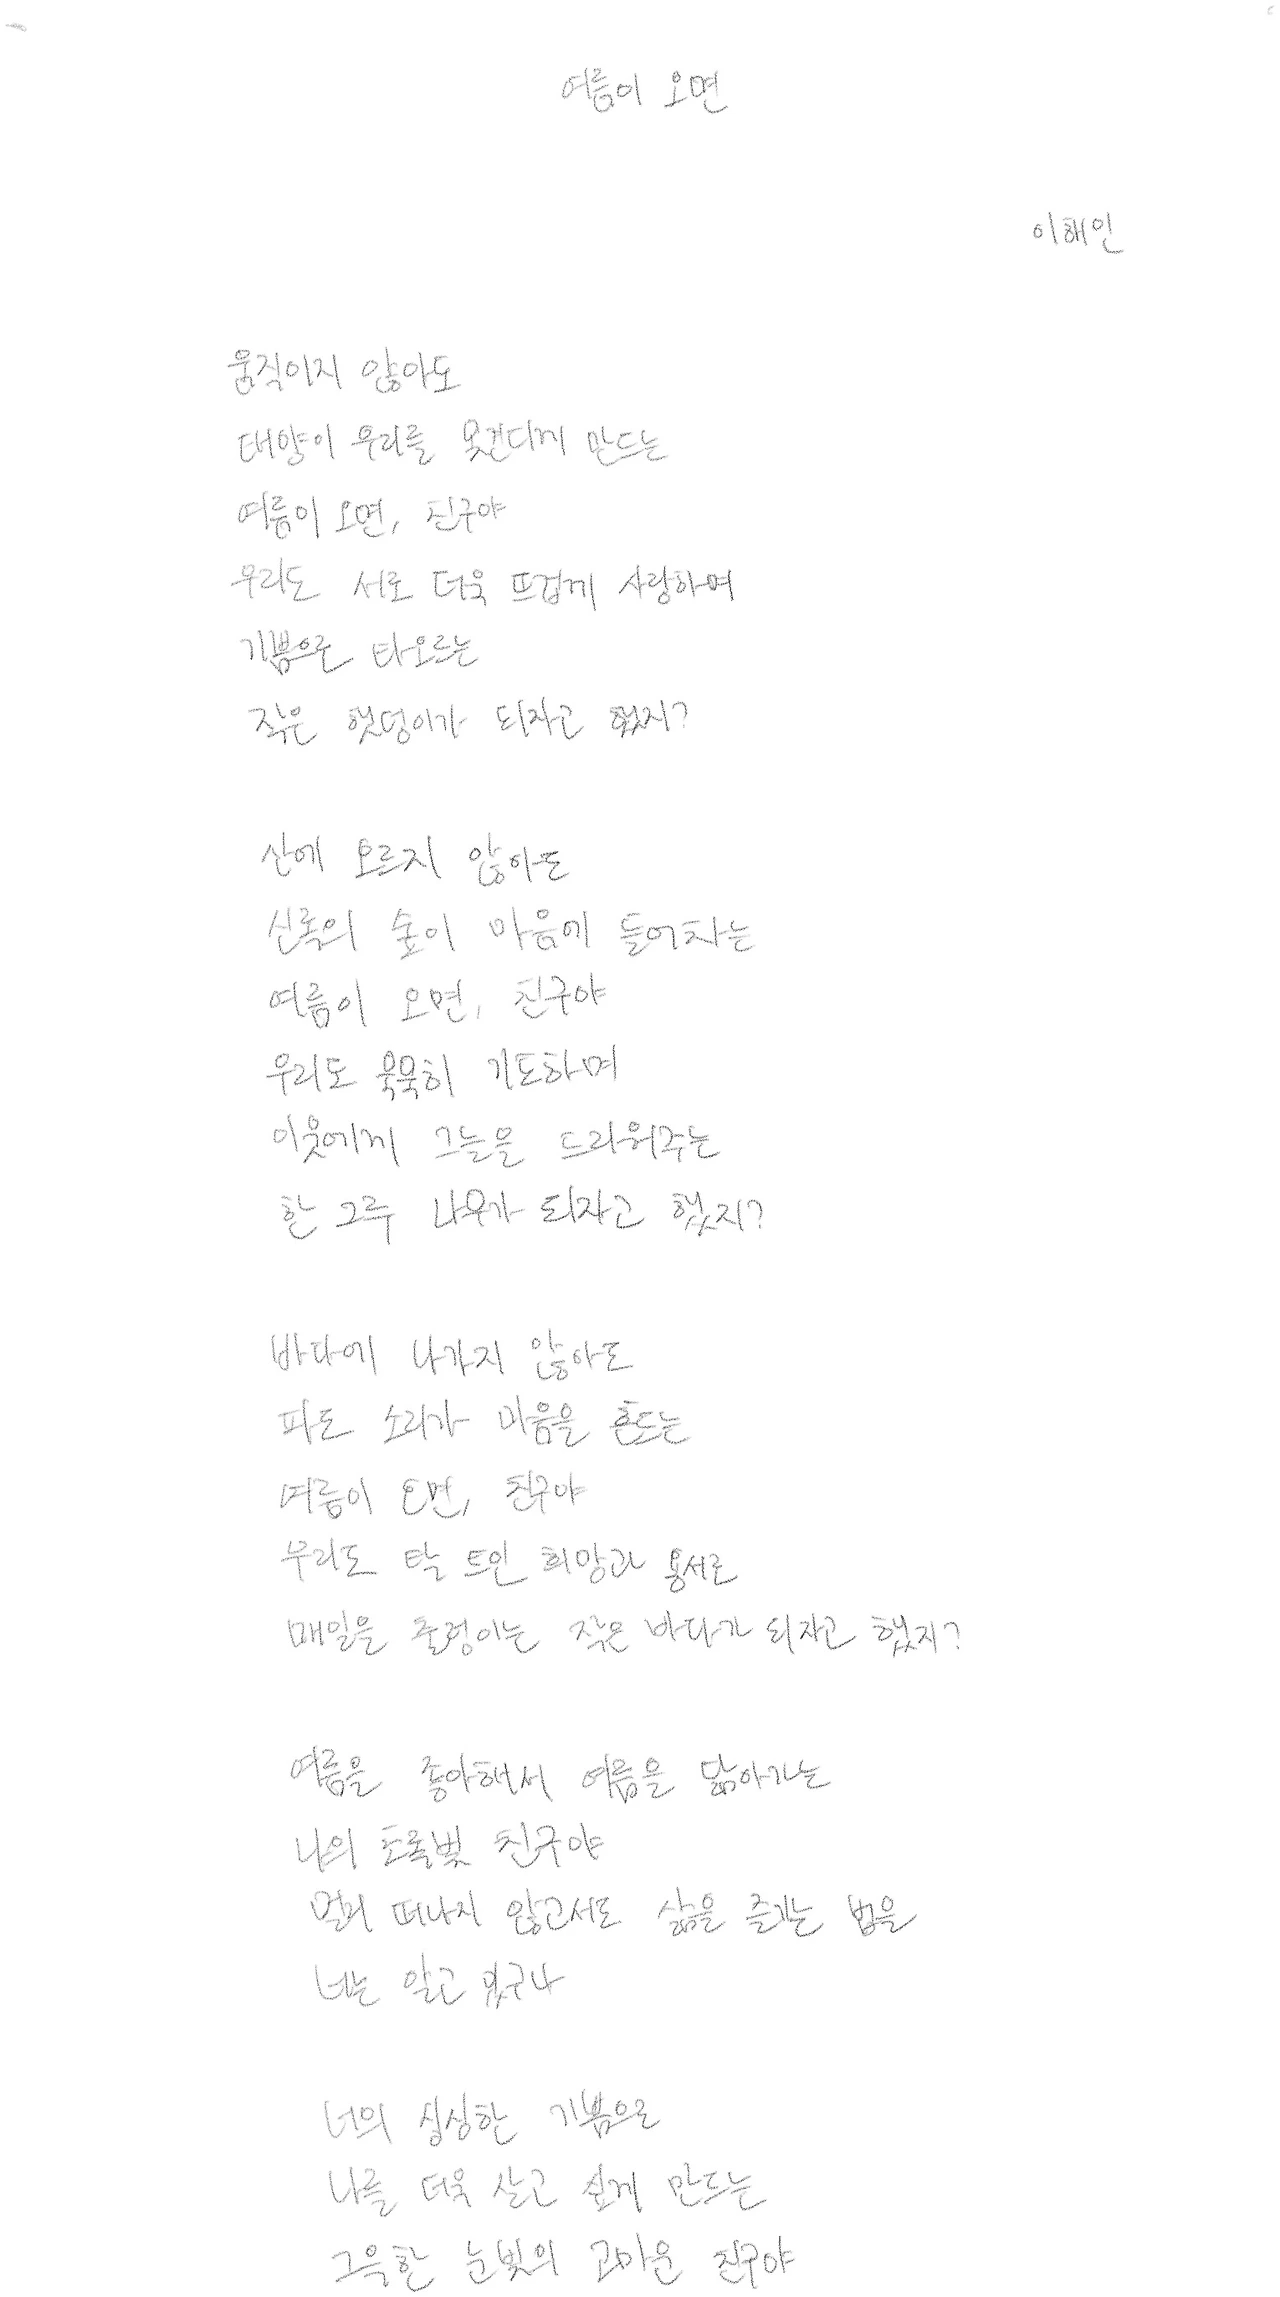 여름이 오면
이해인
움직이지 않아도
태양이 우리를 못견디게 만드는
여름이 오면, 친구야
우리도 서로 더욱 뜨겁게 사랑하며
기쁨으로 타오르는
작은 햇덩이가 되자고 했지?
산에 오르지 않아도
신록의 숲이 마음에 들어차는
여름이 오면, 친구야
우리도 묵묵히 기도하며
이웃에게 그늘을 드리워주는
한 그루 나무가 되자고 했지?
바다에 나가지 않아도
파도 소리가 마음을 흔드는
여름이 오면, 친구야
우리도 탁 트인 희망과 용서로
매일을 출렁이는 작은 바다가 되자고 했지?
여름을 좋아해서 여름을 닮아가는
나의 초록빛 친구야
멀리 떠나지 않고서도 삶을 즐기는 법을
너는 알고 있구나
너의 싱싱한 기쁨으로
나를 더욱 살고 싶게 만드는
그윽한 눈빛의 고마운 친구야